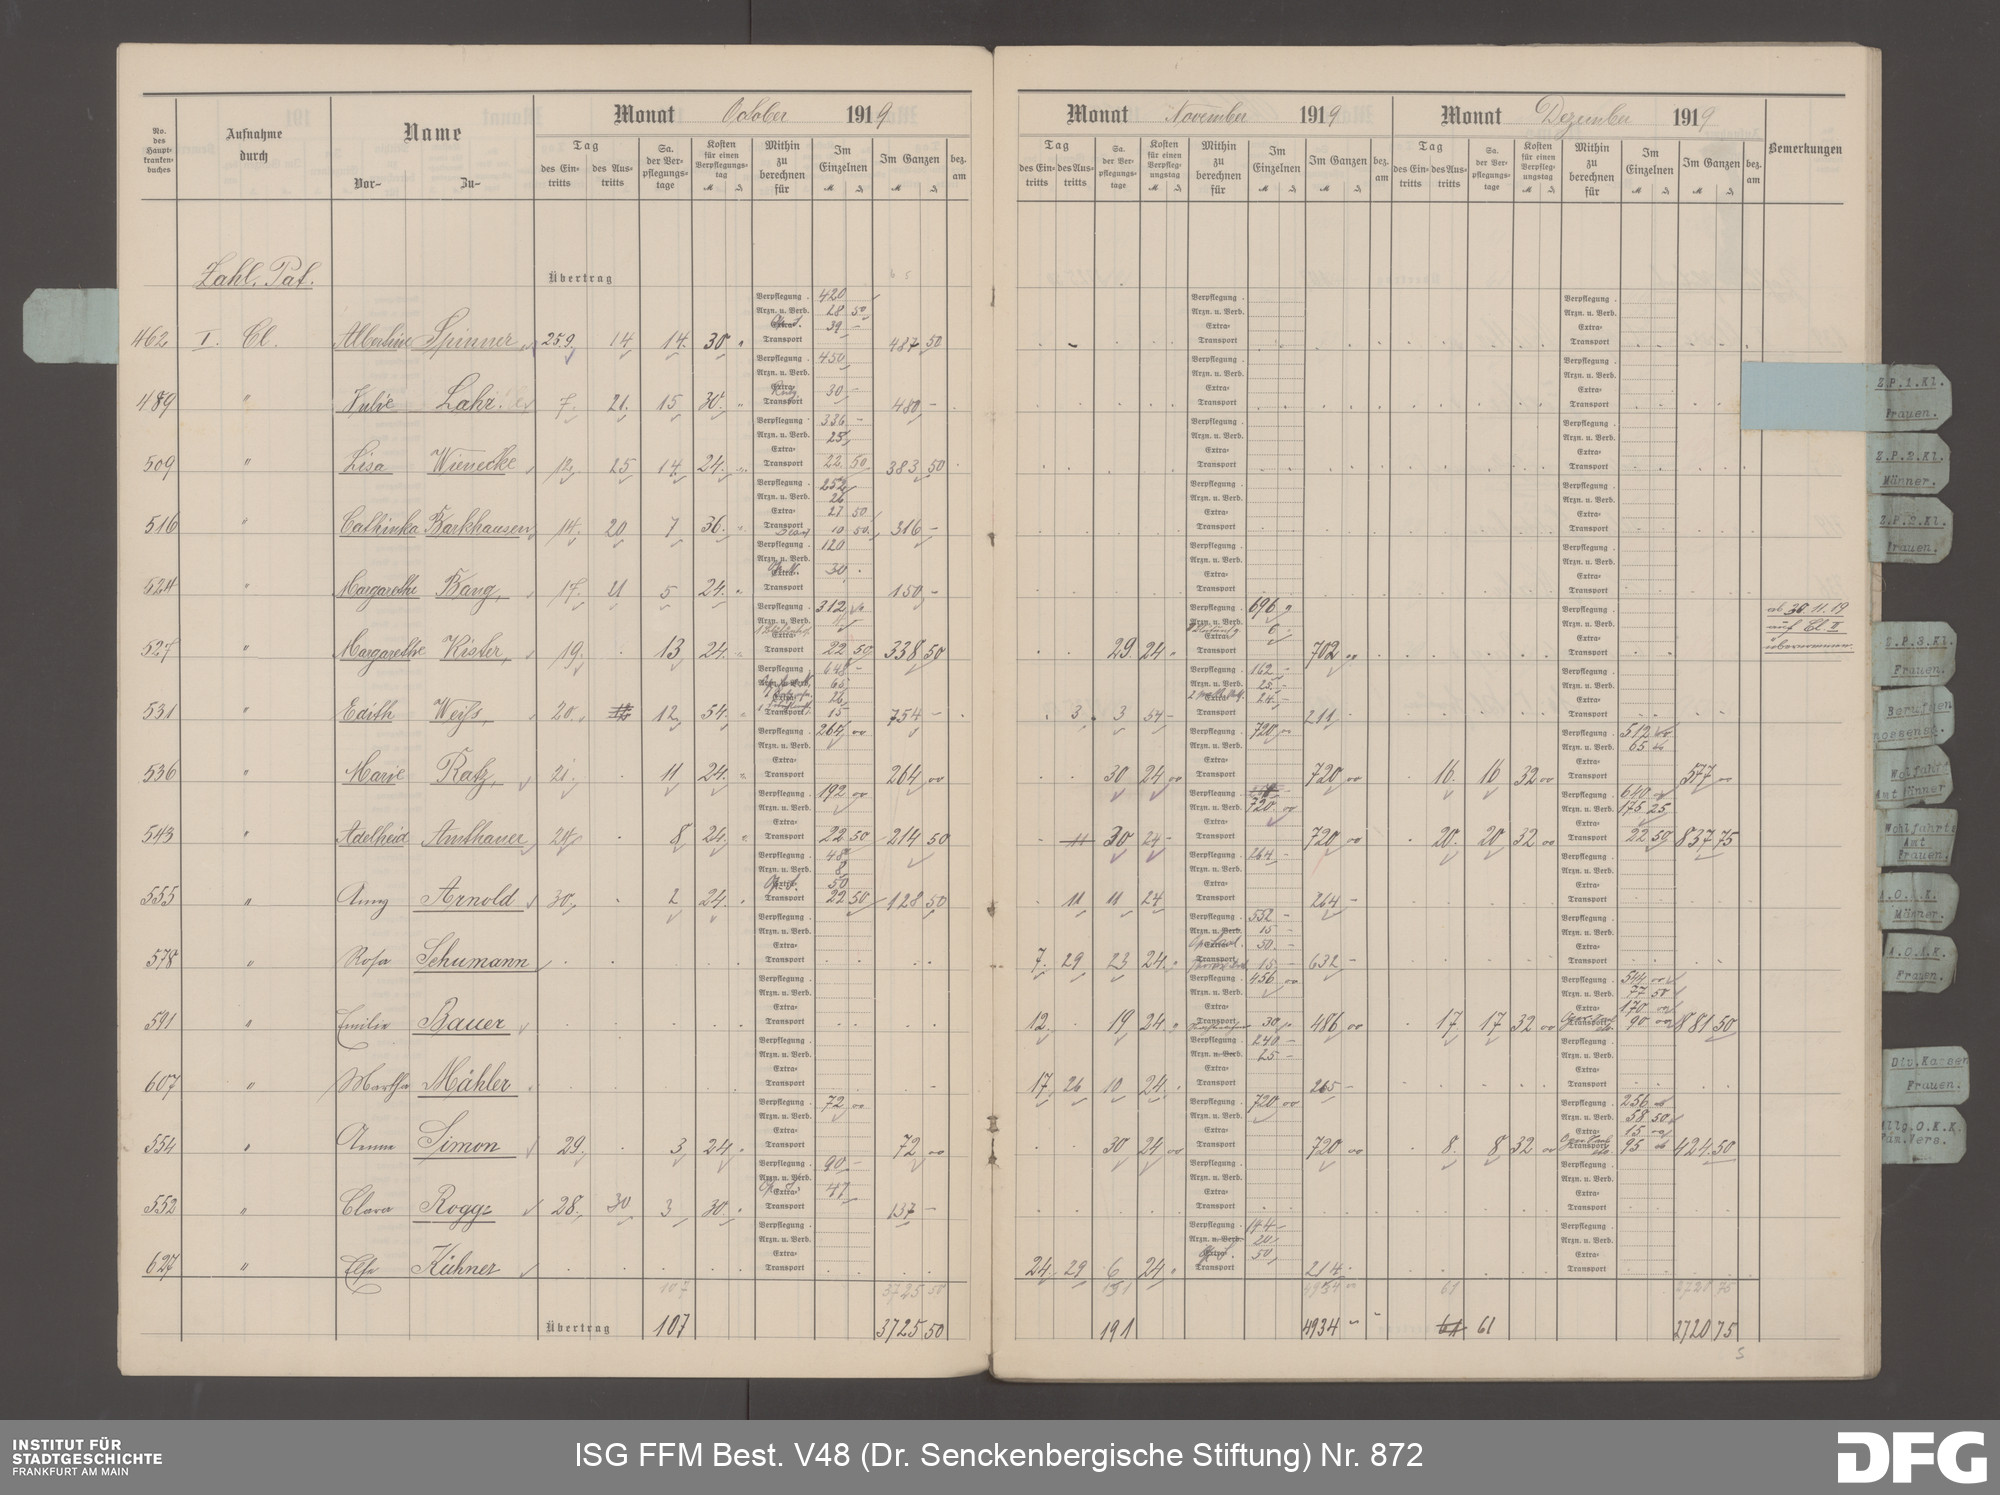 Monat October 1919
Monat November 1919
Monat Dezember 1919
No. des Haupt-krankenbuches
Aufnahme durch
Name
Vor-
Zu-
Tag
des Eintritts
des Austritts
Sa. der Verpflegungstage
Kosten für einen Verpflegungstag
Mithin zu berechnen für
Im Einzelnen
Im Ganzen
bez. am
Bemerkungen
Zahl. Pat.
Übertrag
462 I. Cl. Albertine Spinner 25.9. 14 14 30 Verpflegung 420 Arzn. u. Verb. 28 50 39 Transport 487 50
489 " Julie Lahr 7. 21. 15 30 Verpflegung 450 30 Transport 480
509 " Lisa Wienecke 12. 25 14 24 Verpflegung 336 Arzn. u. Verb. 25 Extra Transport 22 50 383 50
516 " Cathinka Barkhausen 14. 20 7 36 Verpflegung 252 Arzn. u. Verb. 26 Extra 27 50 Transport 10 50 316
524 " Margarethe Bang 17. 21 5 24 Verpflegung 120 30 Transport 150
527 " Margarethe Kister 19. 13 24 Verpflegung 312 Transport 22 50 338 50 29 24 Verpflegung 696 6 702 ab 30.11.19 auf Cl. II übernommen
531 " Edith Weiß 20. 12 54 Verpflegung 648 65 26 15 754 3 3 54 Verpflegung 162 25 24 211
536 " Marie Ratz 21. 11 24 Verpflegung 264 00 264 00 30 24 00 720 00 720 00 16 16 32 00 512 65 577 00
543 " Adelheid Amthauer 24 8 24 Verpflegung 192 00 Transport 22 50 214 50 30 24 720 00 720 00 20 20 32 00 640 175 25 22 50 837 75
555 " Anny Arnold 30. 2 24 48 8 50 22 50 128 50 11 11 24 264 264
578 " Rosa Schumann 7. 29 23 24 552 15 50 15 632
591 " Emilie Bauer 12. 19 24 456 00 30 486 00 17 17 32 00 544 00 77 50 170 90 881 50
607 " Martha Mähler 17. 26 10 24 240 25 265
554 " Anna Simon 29. 3 24 72 00 72 00 30 24 00 720 00 720 00 8 8 32 00 256 58 50 15 95 424 50
552 " Clara Rogge 28. 30 3 30 90 47 137
627 " Else Kühner 24. 29 6 24 144 20 50 214
107 3725 50 191 4934 61 2720 75
Übertrag 107 3725 50 191 4934 61 2720 75
Z.P.1.Kl. Frauen.
Z.P.2.Kl. Männer.
Z.P.2.Kl. Frauen.
Z.P.3.Kl. Frauen.
Berufgenossensch.
Wohlfahrts Amt Männer
Wohlfahrts Amt Frauen.
A.O.K.K. Männer.
A.O.K.K. Frauen.
Div.Kassen Frauen.
Allg.O.K.K. Fam.Vers.
INSTITUT FÜR
STADTGESCHICHTE
FRANKFURT AM MAIN
ISG FFM Best. V48 (Dr. Senckenbergische Stiftung) Nr. 872
DFG